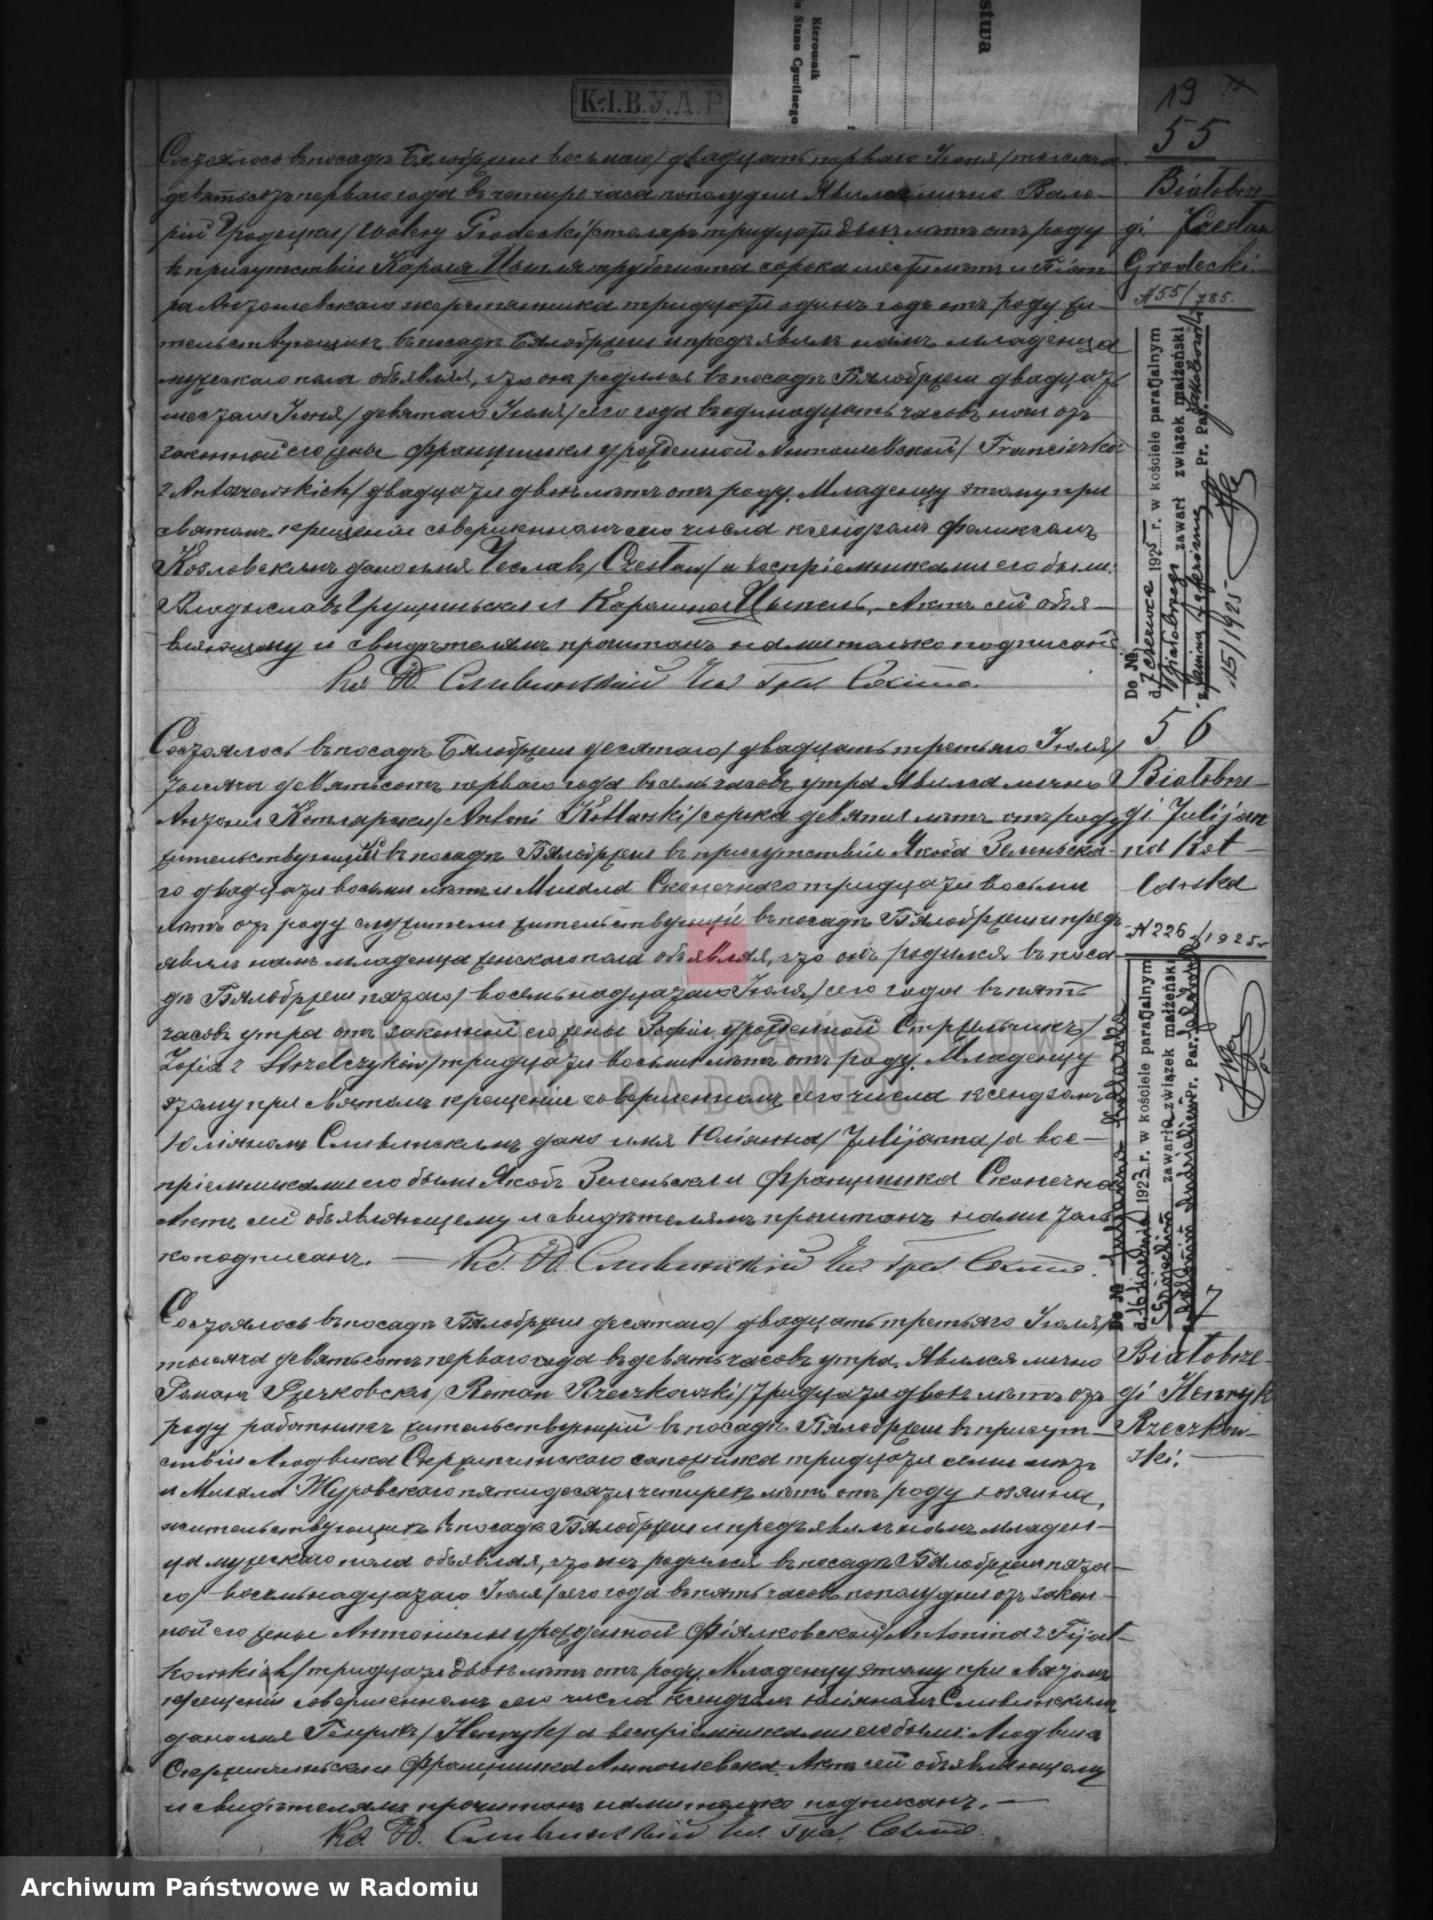 К.-І.В.У.Д.Р
Kierownik
Stanu Cywilnego
stwa
19
55
Białobrze-
gi Czesław
Grodecki
N 55/785.
Состоялось въ посадѣ Бялобрщеги восьмаго/двадцать перваго Іюля/тысяча
девятьсотъ перваго года въ четыре часа пополудни. Явился лично Вале-
рій Гродецки/Walery Grodecki/столяръ тридцати двухъ лѣтъ отъ роду
въ присутствіи Кароля Цыпля трубочиста сорока шести лѣтъ и Пет-
ра Антошевскаго тридцати одинъ годъ отъ роду жи-
тельствующихъ въ посадѣ Бялобржеги и предъявилъ намъ младенца
мужескаго пола объявляя, что онъ родился въ посадѣ Бялобржеги двадцать
шестаго Іюня/девятаго Іюля/сего года въ одинадцать часовъ ночи отъ
законной его жены Францишки урожденной Антошевской/Franciszka
z Antoszewskich/двадцати двухъ лѣтъ отъ роду. Младенцу этому при
святомъ крещеніи совершенномъ сего числа ксендзомъ Феликсомъ
Козловскимъ дано имя Чеславъ/Czesław/а воспріемниками его были:
Владыславъ и Каролина Цыпель. Актъ сей объя-
вляющему и свидѣтелямъ прочитанъ нами только подписанъ
Кс. Ю. Сливинскій Чи. Гра. Сост.
Do №
d. 7 czerwca 1925 r. w kościele parafjalnym
Białobrzegi zawarł związek małżeński
Pr. Par.
15/1925
56
Białobrze-
gi Julijan
na Kot-
larska
N 226/1925 r
Состоялось въ посадѣ Бялобржеги десятаго/двадцать третьяго Іюля/
тысяча девятьсотъ перваго года въ семь часовъ утра. Явился лично
Антони Котларски/Antoni Kotlarski/сорока девяти лѣтъ отъ роду
жительствующій въ посадѣ Бялобржеги въ присутствіи Якоба Зеленьска-
го двадцати восьми лѣтъ и Михала Сконечнаго тридцати восьми
лѣтъ отъ роду служители жительствующій въ посадѣ Бялобржеги и предъ-
явилъ намъ младенца женскаго пола объявляя, что онъ родился въ поса-
дѣ Бялобржеги пятаго/восемьнадцатаго Іюля/сего года въ пять
часовъ утра отъ законной его жены Зофіи урожденной Стрѣльчикъ/
Zofia z Strzelczyków/тридцати восьми лѣтъ отъ роду. Младенцу
этому при святомъ крещеніи совершенномъ сего числа ксендзомъ
Юліяномъ Сливинскимъ дано имя Юліянна/Julijanna/а вос-
пріемниками его были Якобъ Зеленьски и Францишка Сконечна
Актъ сей объявляющему и свидѣтелямъ прочитанъ нами толь-
ко подписанъ. — Кс. Ю. Сливинскій Чи. Гра. Сост.
ARCHIWUM PAŃSTWOWE
W RADOMIU
Do № Juljanna Kotlarska
1923 r. w kościele parafjalnym
zawarła związek małżeński
Pr. Par.
7
Białobrze-
gi Henryk
Rzeczkow-
ski.
Состоялось въ посадѣ Бялобржеги десятаго/двадцать третьяго Іюля/
тысяча девятьсотъ перваго года въ девять часовъ утра. Явился лично
Романъ Рзечковски/Roman Rzeczkowski/тридцати двухъ лѣтъ отъ
роду работникъ жительствующій въ посадѣ Бялобржеги въ присут-
ствіи Людвика сапожника тридцати семи лѣтъ
и Михала Журовскаго пятидесяти четырехъ лѣтъ отъ роду хозяина,
жительствующихъ въ посадѣ Бялобржеги и предъявилъ намъ младен-
ца мужескаго пола объявляя, что онъ родился въ посадѣ Бялобржеги пята-
го/восемьнадцатаго Іюля/сего года въ пять часовъ пополудни отъ закон-
ной его жены Антонины урожденной Фіялковской/Antonina z Fijał-
kowskich/тридцати двухъ лѣтъ отъ роду. Младенцу этому при святомъ
крещеніи совершенномъ сего числа ксендзомъ Юліяномъ Сливинскимъ
дано имя Генрикъ/Henryk/а воспріемниками его были: Людвикъ
и Францишка Антошевска. Актъ сей объявляющему
и свидѣтелямъ прочитанъ нами только подписанъ. —
Кс. Ю. Сливинскій Чи. Гра. Сост.
Archiwum Państwowe w Radomiu